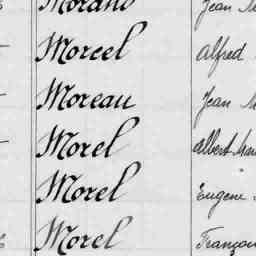 Morand Jean
Morcel Alfred
Moreau Jean
Morel Albert
Morel Eugene
Morel François